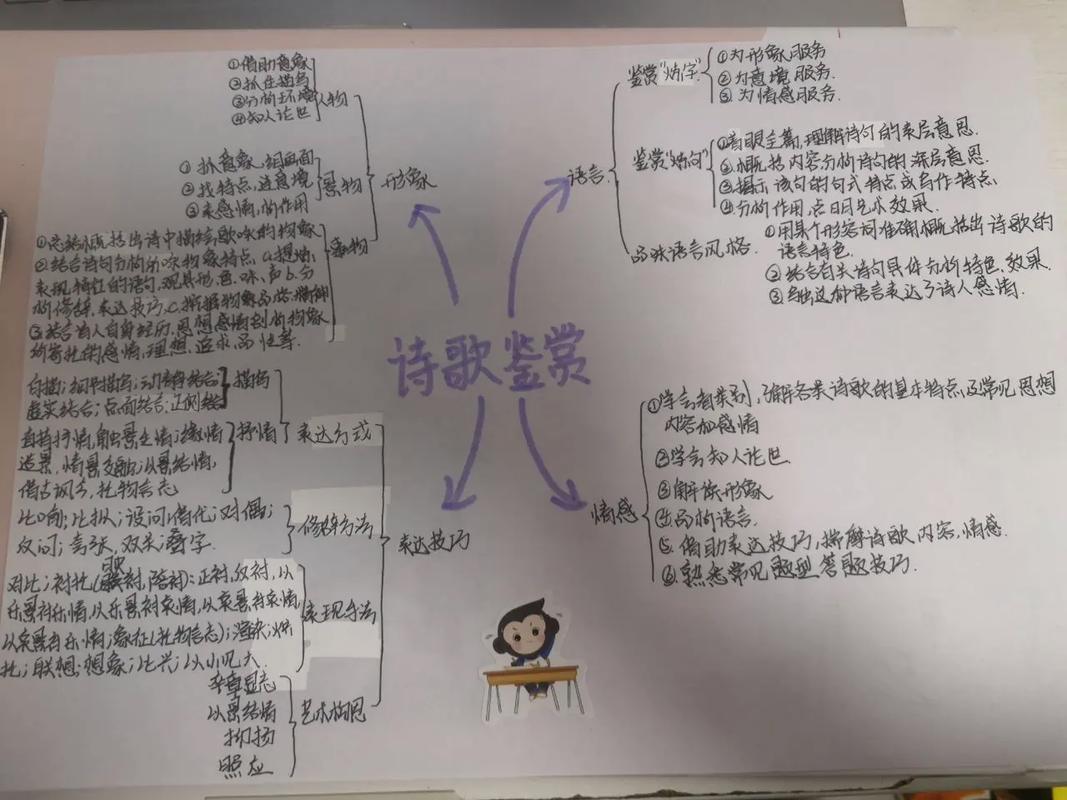 诗歌鉴赏
形象
人物
①借助意象
②抓住描写
③分析环境
④知人论世
景物
①抓意象,组画面
②找特点,造意境
③表感情,析作用
事物
①总结概括出诗中描绘歌咏的物象
②结合诗句分析所咏物象特点。a.提炼:
表现特征的语句,观其形、色、味、声 b.分
析修辞,表达技巧,c.挖掘物象品格,精神
③结合诗人自身经历,思想感情剖析物象
所寄托的感情,理想,追求,品性等.
语言
鉴赏“炼字”
①为形象服务
②为意境服务.
③为情感服务.
鉴赏“炼句”
①着眼全篇,理解诗句的表层意思.
②概括内容分析诗句的深层意思.
③揭示该句的句式特点或写作特点
④分析作用,点明艺术效果.
品味语言风格.
①用某个形容词准确概括出诗歌的
语言特色.
②结合有关诗句具体分析特色,效果.
③指出这种语言表达了诗人感情.
情感
①学会看类别,了解各类诗歌的基本特点及常见思想
内容和感情
②学会知人论世.
③解读形象
④品析语言.
⑤借助表达技巧,揣摩诗歌内容,情感.
⑥熟悉常见题型答题技巧.
表达技巧
表达方式
描写
白描;细节描写;动静结合
虚实结合;点面结合;正侧结
抒情
直接抒情,触景生情;缘情
造景,情景交融;以景结情,
借古讽今,托物言志
修辞方法
比喻;比拟;设问;借代;对偶;
反问;夸张,双关;叠字.
表现手法
对比;衬托(映衬,陪衬):正衬,反衬,以
乐景衬乐情,以乐景衬哀情,以哀景衬哀情,
以哀景衬乐情;象征(托物言志);渲染;烘
托;联想;想象;比兴;以小见大.
艺术构思
卒章显志
以景结情
抑扬
照应